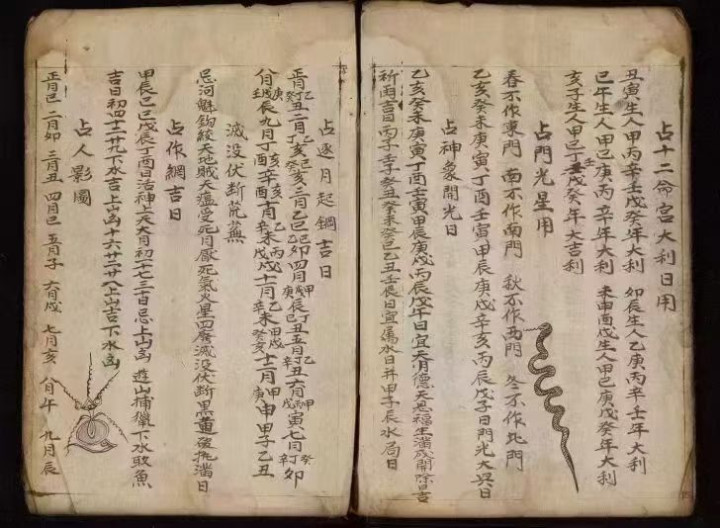 占十二命宮大利日用
丑寅生人甲丙辛壬戊癸年大利 卯辰生人乙庚丙辛壬年大利
巳午生人甲己庚丙辛年大利 未申酉戌生人甲己庚戊癸年大利
亥子生人甲己丁壬戊癸年大吉利
占門光星用
春不作東門 南不作南門 秋不作西門 冬不作北門
乙亥癸未庚寅丁酉壬寅甲辰庚戌辛亥丙辰戊子日門光大日
占神象開光日
乙亥癸未庚寅丁酉壬寅甲辰庚戌丙辰戊午日宜天月德天恩福生滿成開除日吉
祈雨吉日丙子壬子癸丑癸未癸巳乙丑壬辰日宜屬水日并甲子辰水局日
占逐月起鋼吉日
正月乙丁癸丑二月乙丁癸亥三月乙巳己卯四月甲庚辰丁己丑五月乙丁辛丑六月甲丙戊寅七月癸丁辛卯
八月庚壬辰九月丁酉辛酉十月乙辛未丙戊戌十一月乙辛未甲癸亥十二月甲庚申甲子乙丑
滅没伏断荒蕪
忌河魁鈎絞天地賊天瘟受死月厭死氣火星四廢滅没伏断黑黄後执滿日
占作網吉日
甲辰乙巳戊辰丁酉日活神上天大月初一十七三十日忌上山凶 遊山捕獵下水收魚
吉日初四十一廿九下水吉上山凶十六廿二廿八上山吉下水凶
占人影圖
正月巳 二月卯 三月丑 四月巳 五月子 六月戌 七月亥 八月午 九月辰